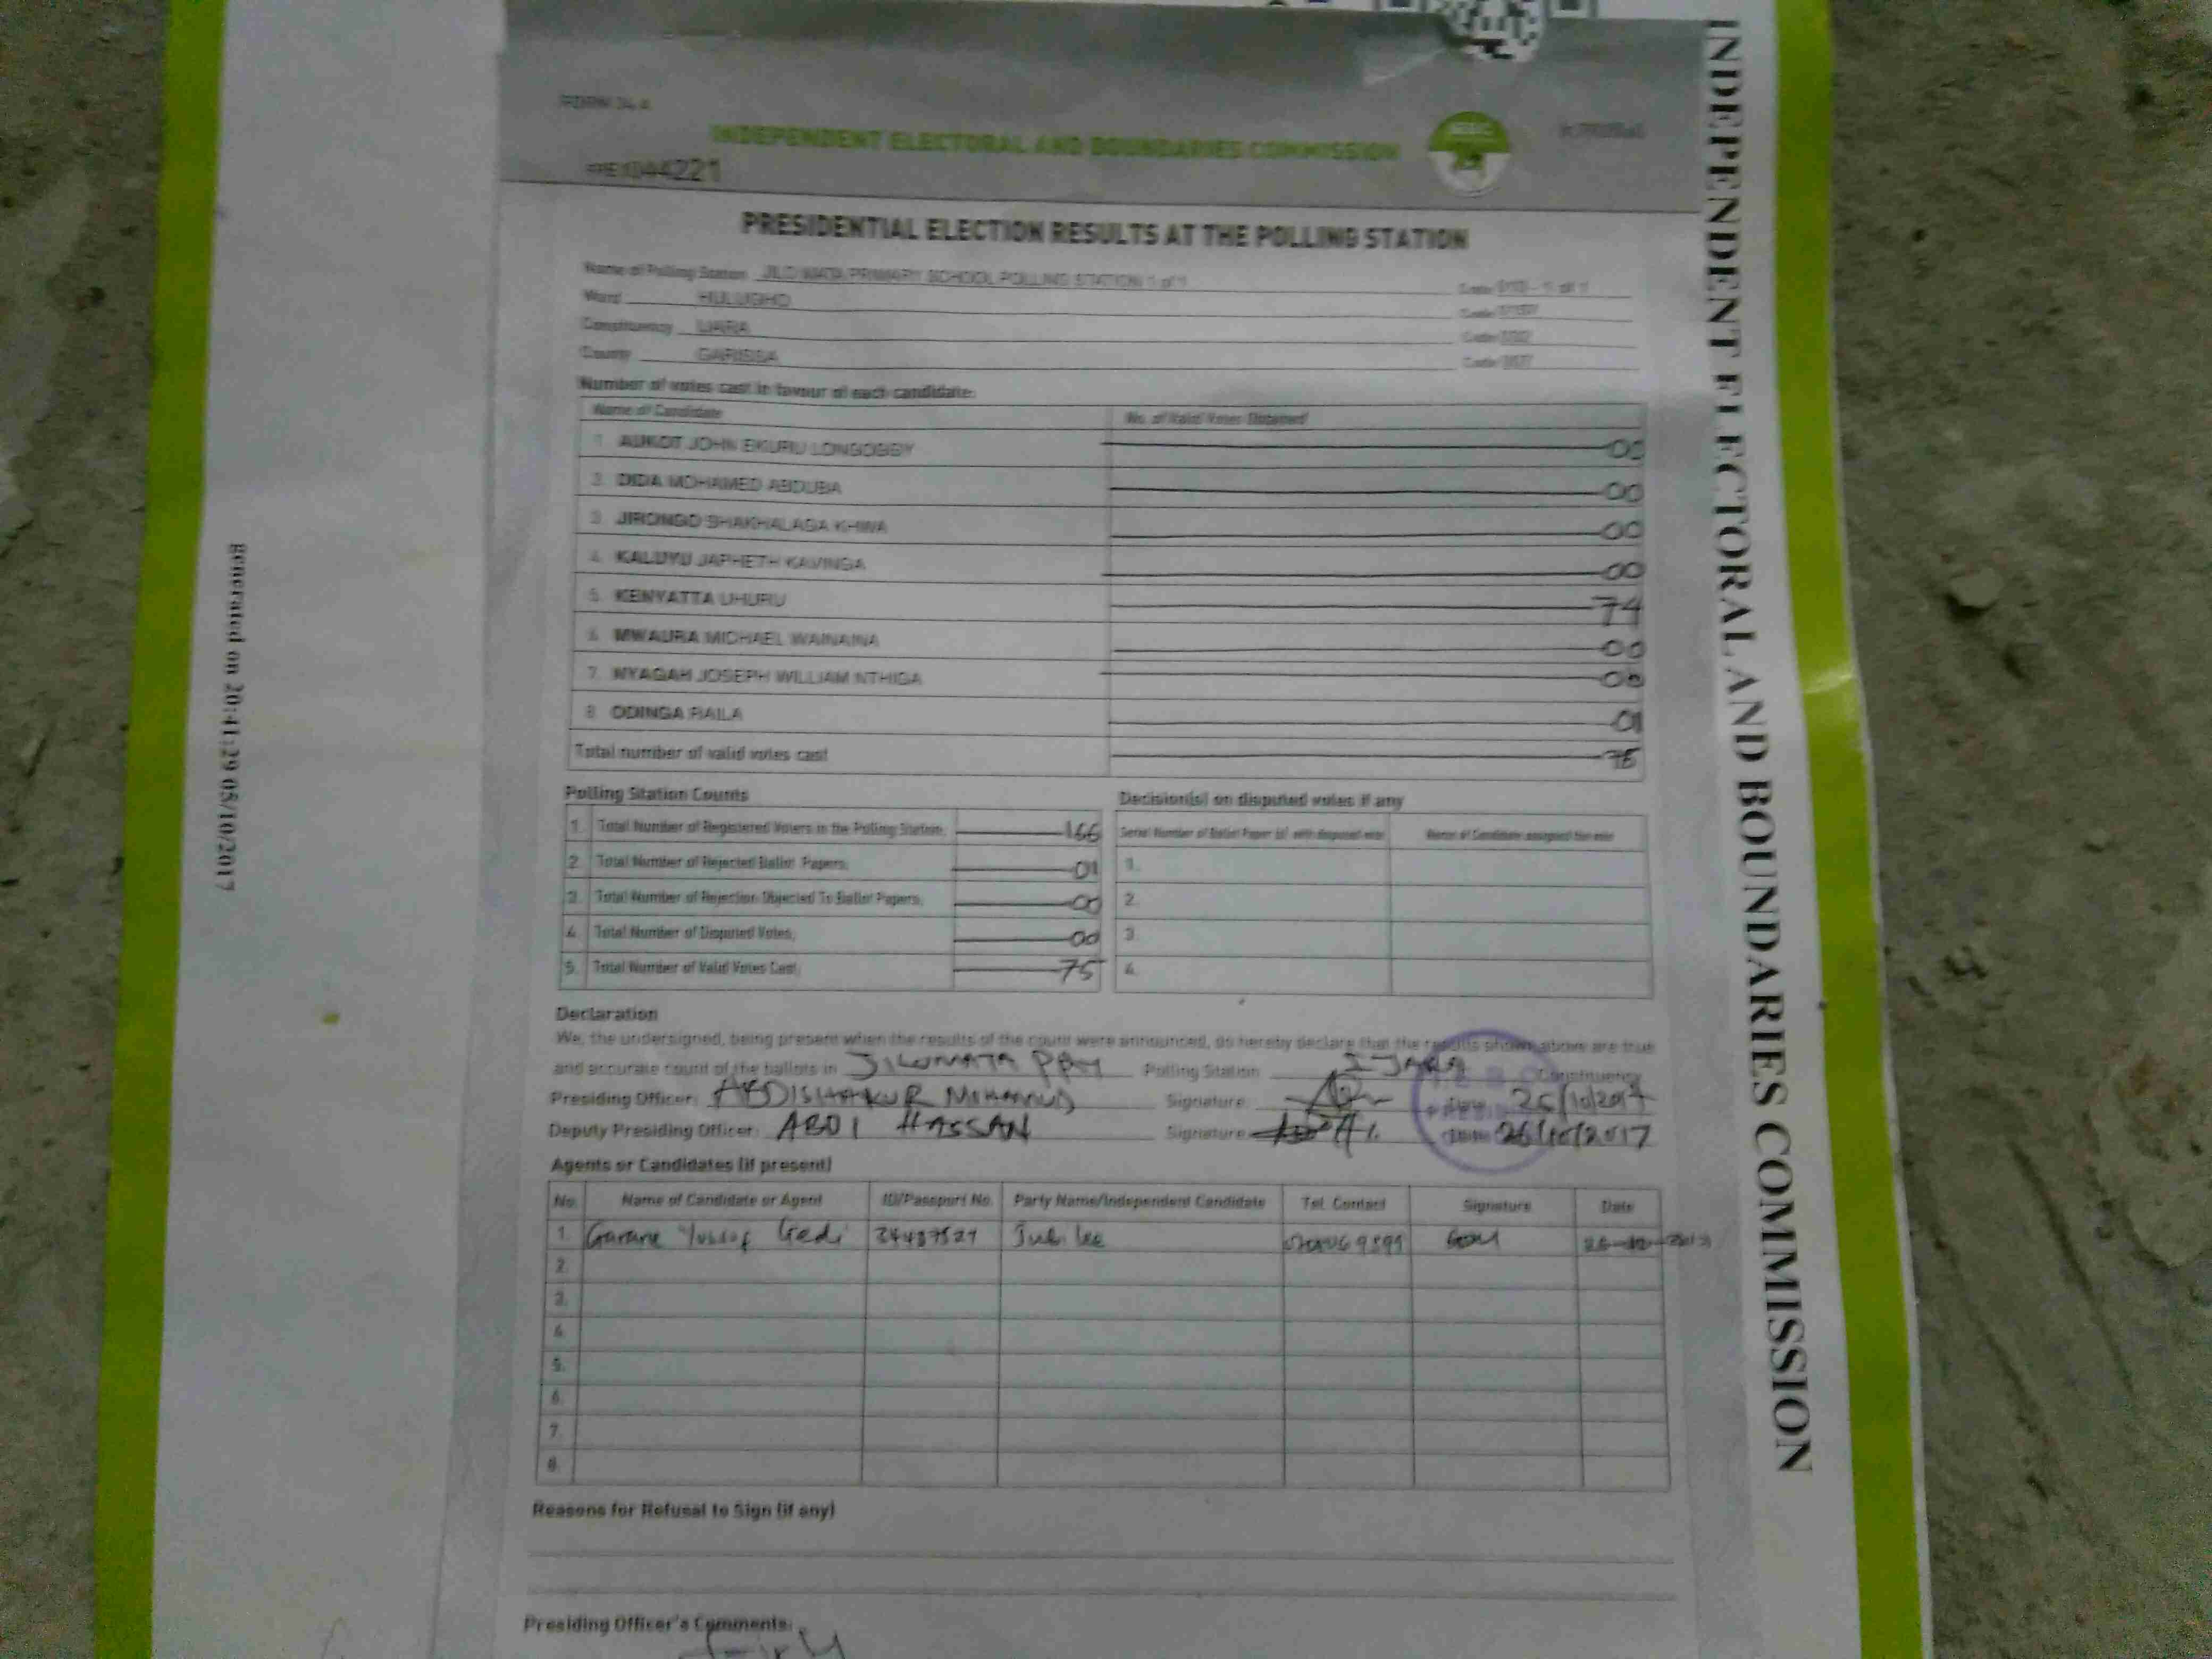 FORM 34 A
INDEPENDENT ELECTORAL AND BOUNDARIES COMMISSION
044221
PRESIDENTIAL ELECTION RESULTS AT THE POLLING STATION
Name of Polling Station JILO MATA PRIMARY SCHOOL POLLING STATION 1 of 1
Ward HULUGHO
Constituency IJARA
County GARISSA
Number of votes cast in favour of each candidate:
Name of Candidate No. of Valid Votes Obtained
1. AUKOT JOHN EKURU LONGOGGY 00
2. DIDA MOHAMED ABDUBA 00
3. JIRONGO SHAKHALAGA KHWA 00
4. KALUYU JAPHETH KAVINGA 00
5. KENYATTA UHURU 74
6. MWAURA MICHAEL WAINAINA 00
7. NYAGAH JOSEPH WILLIAM NTHIGA 00
8. ODINGA RAILA 01
Total number of valid votes cast 75
Polling Station Counts
1. Total Number of Registered Voters in the Polling Station; 166
2. Total Number of Rejected Ballot Papers; 01
3. Total Number of Rejection Objected To Ballot Papers; 00
4. Total Number of Disputed Votes; 00
5. Total Number of Valid Votes Cast; 75
Decision(s) on disputed votes if any
Serial Number of Ballot Paper (s) with disputed vote Name of Candidate assigned the vote
1.
2.
3.
4.
Declaration
We, the undersigned, being present when the results of the count were announced, do hereby declare that the results shown above are true
and accurate count of the ballots in JILOMATA PRY Polling Station IJARA Constituency
Presiding Officer: ABDISHAKUR MOHAMUD Signature: Date 26/10/2017
Deputy Presiding Officer: ABDI HASSAN Signature Date 26/10/2017
Agents or Candidates (if present)
No. Name of Candidate or Agent ID/Passport No. Party Name/Independent Candidate Tel. Contact Signature Date
1. Garane Yussuf Gedi Jubilee
2.
3.
4.
5.
6.
7.
8.
Reasons for Refusal to Sign (if any)
Presiding Officer's Comments:
INDEPENDENT ELECTORAL AND BOUNDARIES COMMISSION
generated on 20:41:29 05/10/2017